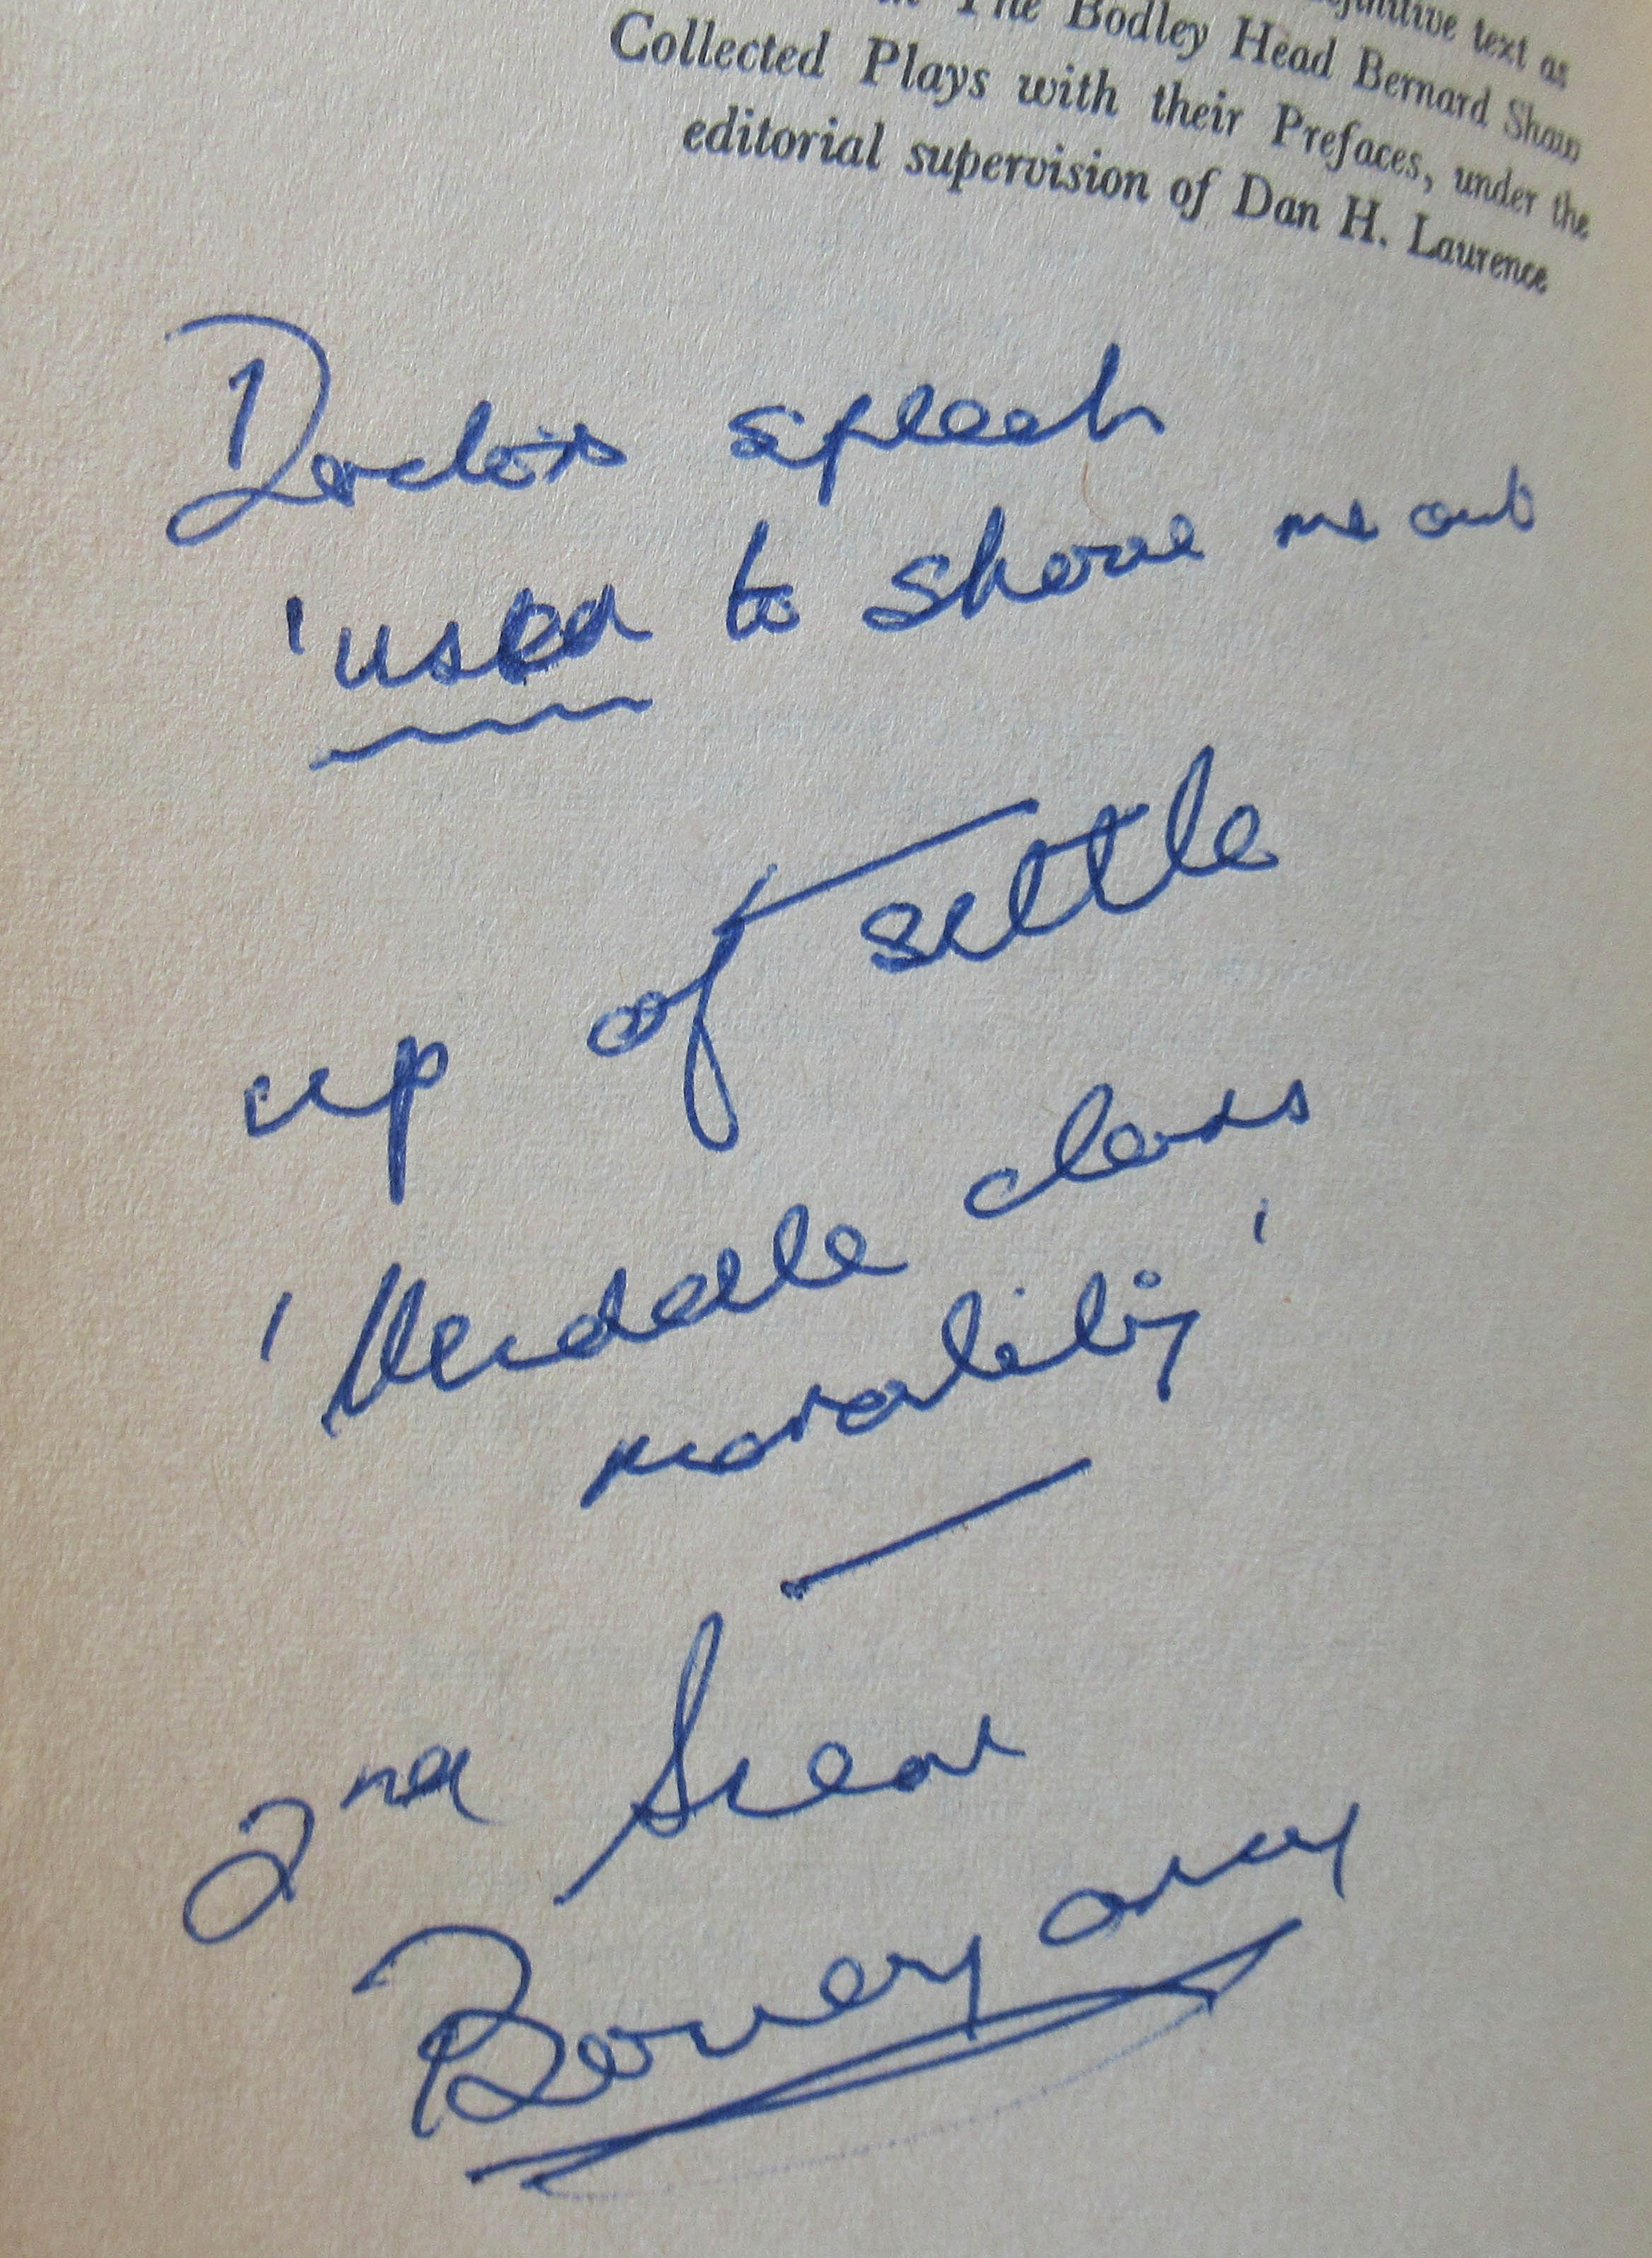 text as
The Bodley Head Bernard Shaw
Collected Plays with their Prefaces, under the
editorial supervision of Dan H. Laurence
Doctors speech
'used to shove me out
up of settle
'Middle class
morality'
2nd